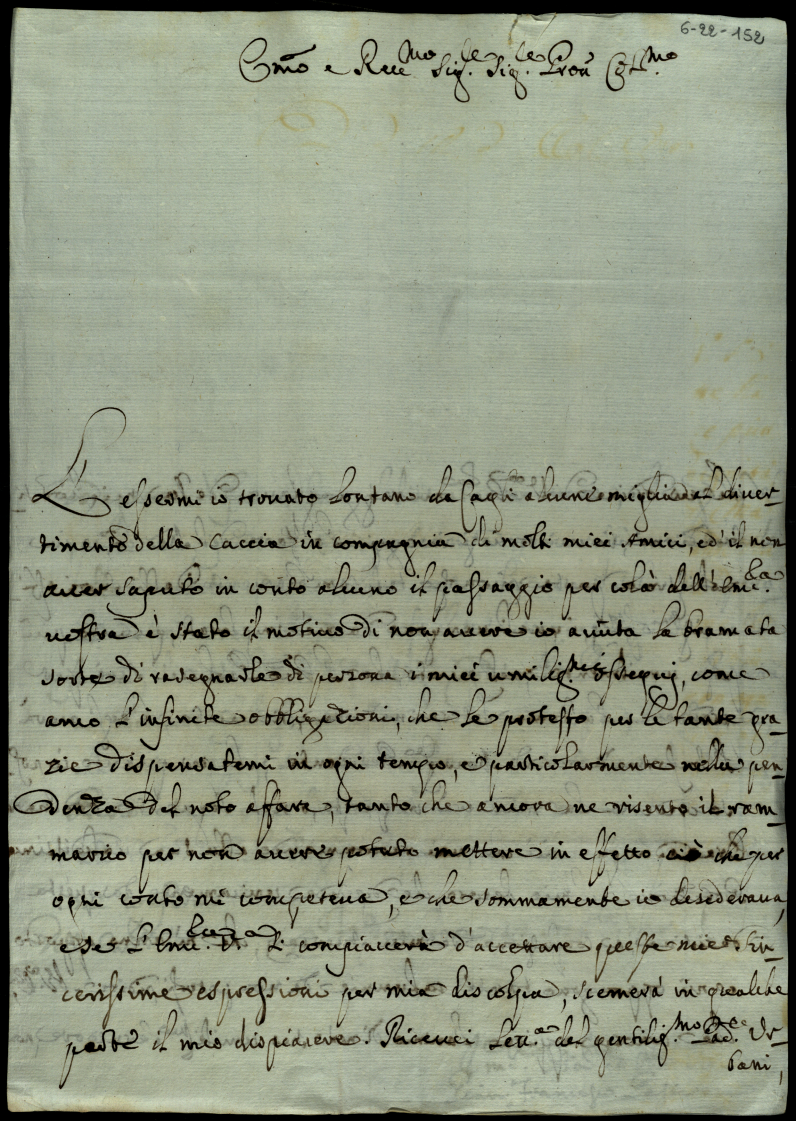 6-22-152
Emo e Reu.mo Sig.re Sig.re Pron Col.mo
L'essermi io trouato Lontano da Cagli alcune miglia al diuer-
timento della Caccia in compagnia di molti miei Amici, ed' il non
auer saputo in conto alcuno il passaggio per colà dell'Emi.za
uostra è stato il motiuo di non auere io auuta la bramata
sorte di rasegnarle di persona i miei umilis.mi ossequj, come
anco L'infinite obbligazioni, che Le professo per Le tante gra-
zie dispensatemi in ogni tempo, e particolarmente nella pen-
denza del noto affare, tanto che ancora ne risento il ram-
marico per non auere potuto mettere in effetto ciò che per
ogni conto mi competeua, e che sommamente io desideraua,
e se L'Emi.za V.a si compiacerà d'accettare queste mie sin-
cerissime espressioni per mia discolpa, scemerà in qualche
parte il mio dispiacere. Riceuei Lett.a del gentilis.mo Ur-
bani,